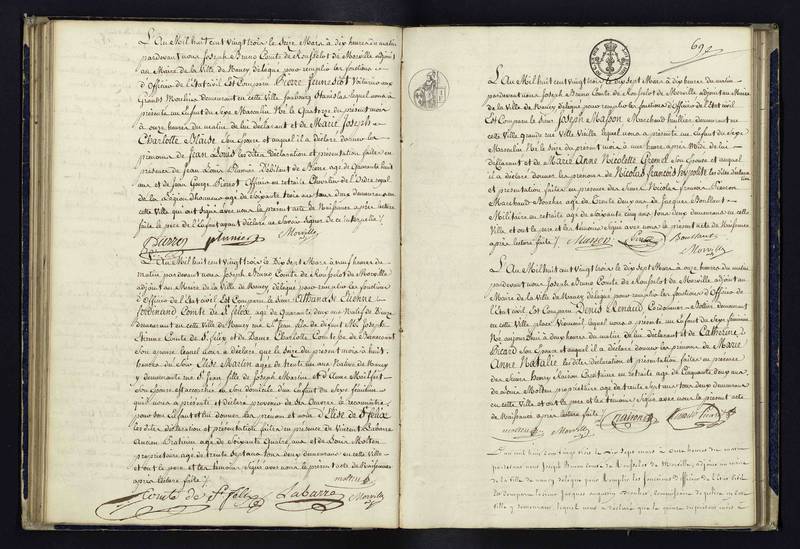 L'An Mil huit cent vingt trois le Seize Mars à dix heures du matin
pardevant nous Joseph Bruno Comte de Rousselot de Morville adjoint
au Maire de la Ville de Nancy délégué pour remplir les fonctions
d'Officier de l'Etat civil Est Comparu Pierre
demeurant en cette Ville faubourg Stanislas lequel nous a
présenté un Enfant du Sexe Masculin Né le Quatorze du présent mois
à onze heures du matin de lui déclarant et de Marie Joseph
Charlotte Blaise Son Epouse et auquel il a déclaré donner les
prénoms de Jean Louis les dites Déclaration et présentation faites en
présence de Jean Louis
ans et de Jean George Officier en retraite Chevalier de l'Ordre royal
de la Légion d'honneur agé de Soixante trois ans tous deux demeurans en
cette Ville qui ont signé avec nous le présent acte de Naissance après lecture
faite le père de l'Enfant ayant déclaré ne Savoir Signer de ce interpellé /.
Morville
L'An Mil huit cent Vingt trois le Dix Sept Mars à neuf heures du
matin pardevant nous Joseph Bruno Comte de Rousselot de Morville
adjoint au Maire de la Ville de Nancy délégué pour remplir les fonctions
d'Officier de l'Etat civil Est Comparu le Sieur Athanase Etienne
ferdinand Comte de St félix agé de Quarante deux ans Natif de
demeurant en cette Ville de Nancy rue St Jean fils de défunt Mr Joseph
Etienne Comte de St félix et de Dame Charlotte Comtesse de
Son épouse lequel Nous a déclaré que le Seize du présent mois à huit
heures du Soir Elise Martin agée de trente un ans Native de Nancy
y demeurante rue St Jean fille de Joseph Martin et d'Anne
Son Epouse est accouchée en Son domicile d'un Enfant du Sexe féminin
qu'il nous a présenté et déclaré provenir de Ses Œuvres le reconnaître
pour Son Enfant et lui donner les prénom et nom d'Elise de St félix
les dites déclaration et présentation faites en présence de Vincent Labarre
Ancien Praticien agé de Soixante Quatre ans et de Louis Molten
propriétaire agé de trente Sept ans tous deux demeurans en cette Ville
et ont le père et les témoins Signé avec nous le présent acte de Naissance
après lecture faite /.
Comte de St félix Labarre Morville
69
L'An Mil huit cent vingt trois le dix Sept Mars à dix heures du matin
pardevant nous Joseph Bruno Comte de Rousselot de Morville adjoint au Maire
de la Ville de Nancy délégué pour remplir les fonctions d'Officier de l'Etat civil
Est Comparu le Sieur Joseph Masson Marchand huillier demeurant en
cette Ville grande rue Ville Vieille lequel nous a présenté un Enfant du Sexe
Masculin Né le Seize du présent mois à une heure après Midi de lui
déclarant et de Marie Anne Nicolette Son Epouse et auquel
il a déclaré donner les prénoms de Nicolas François hypolite les dites déclaration
et présentation faites en présence des Sieurs Nicolas
Marchand Boucher agé de trente deux ans et Jacques
Militaire en retraite agé de Soixante cinq ans tous deux demeurans en cette
Ville et ont le père et les témoins Signé avec nous le présent acte de Naissance
après lecture faite /. Masson
Morville
L'An Mil huit cent vingt trois le dix Sept Mars à onze heures du matin
pardevant nous Joseph Bruno Comte de Rousselot de Morville adjoint au
Maire de la Ville de Nancy délégué pour remplir les fonctions d'Officier de
l'Etat civil Est Comparu Denis Renaud Cordonnier demeurant
en cette Ville place lequel nous a présenté un Enfant du Sexe féminin
Né aujourd'hui à deux heures du matin de lui déclarant et de Catherine
Picard Son Epouse et auquel il a déclaré donner les prénoms de Marie
Anne Natalie les dites déclaration et présentation faites en présence
des Sieurs Capitaine en retraite agé de Cinquante deux ans
et Louis Molten propriétaire agé de trente Sept ans tous deux demeurans
en cette Ville et ont le père et les témoins Signé avec nous le présent acte
de Naissance après lecture faite /.
Morville
L'an mil huit cent vingt trois le dix sept mars à deux heures du
pardevant nous Joseph Bruno comte de Rousselot de Morville, adjoint au maire
de la ville de nancy délégué pour remplir les fonctions d'officier de l'état civil
est comparu le sieur Jacques en cette
ville y demeurant, lequel nous a déclaré que le quinze du présent mois à